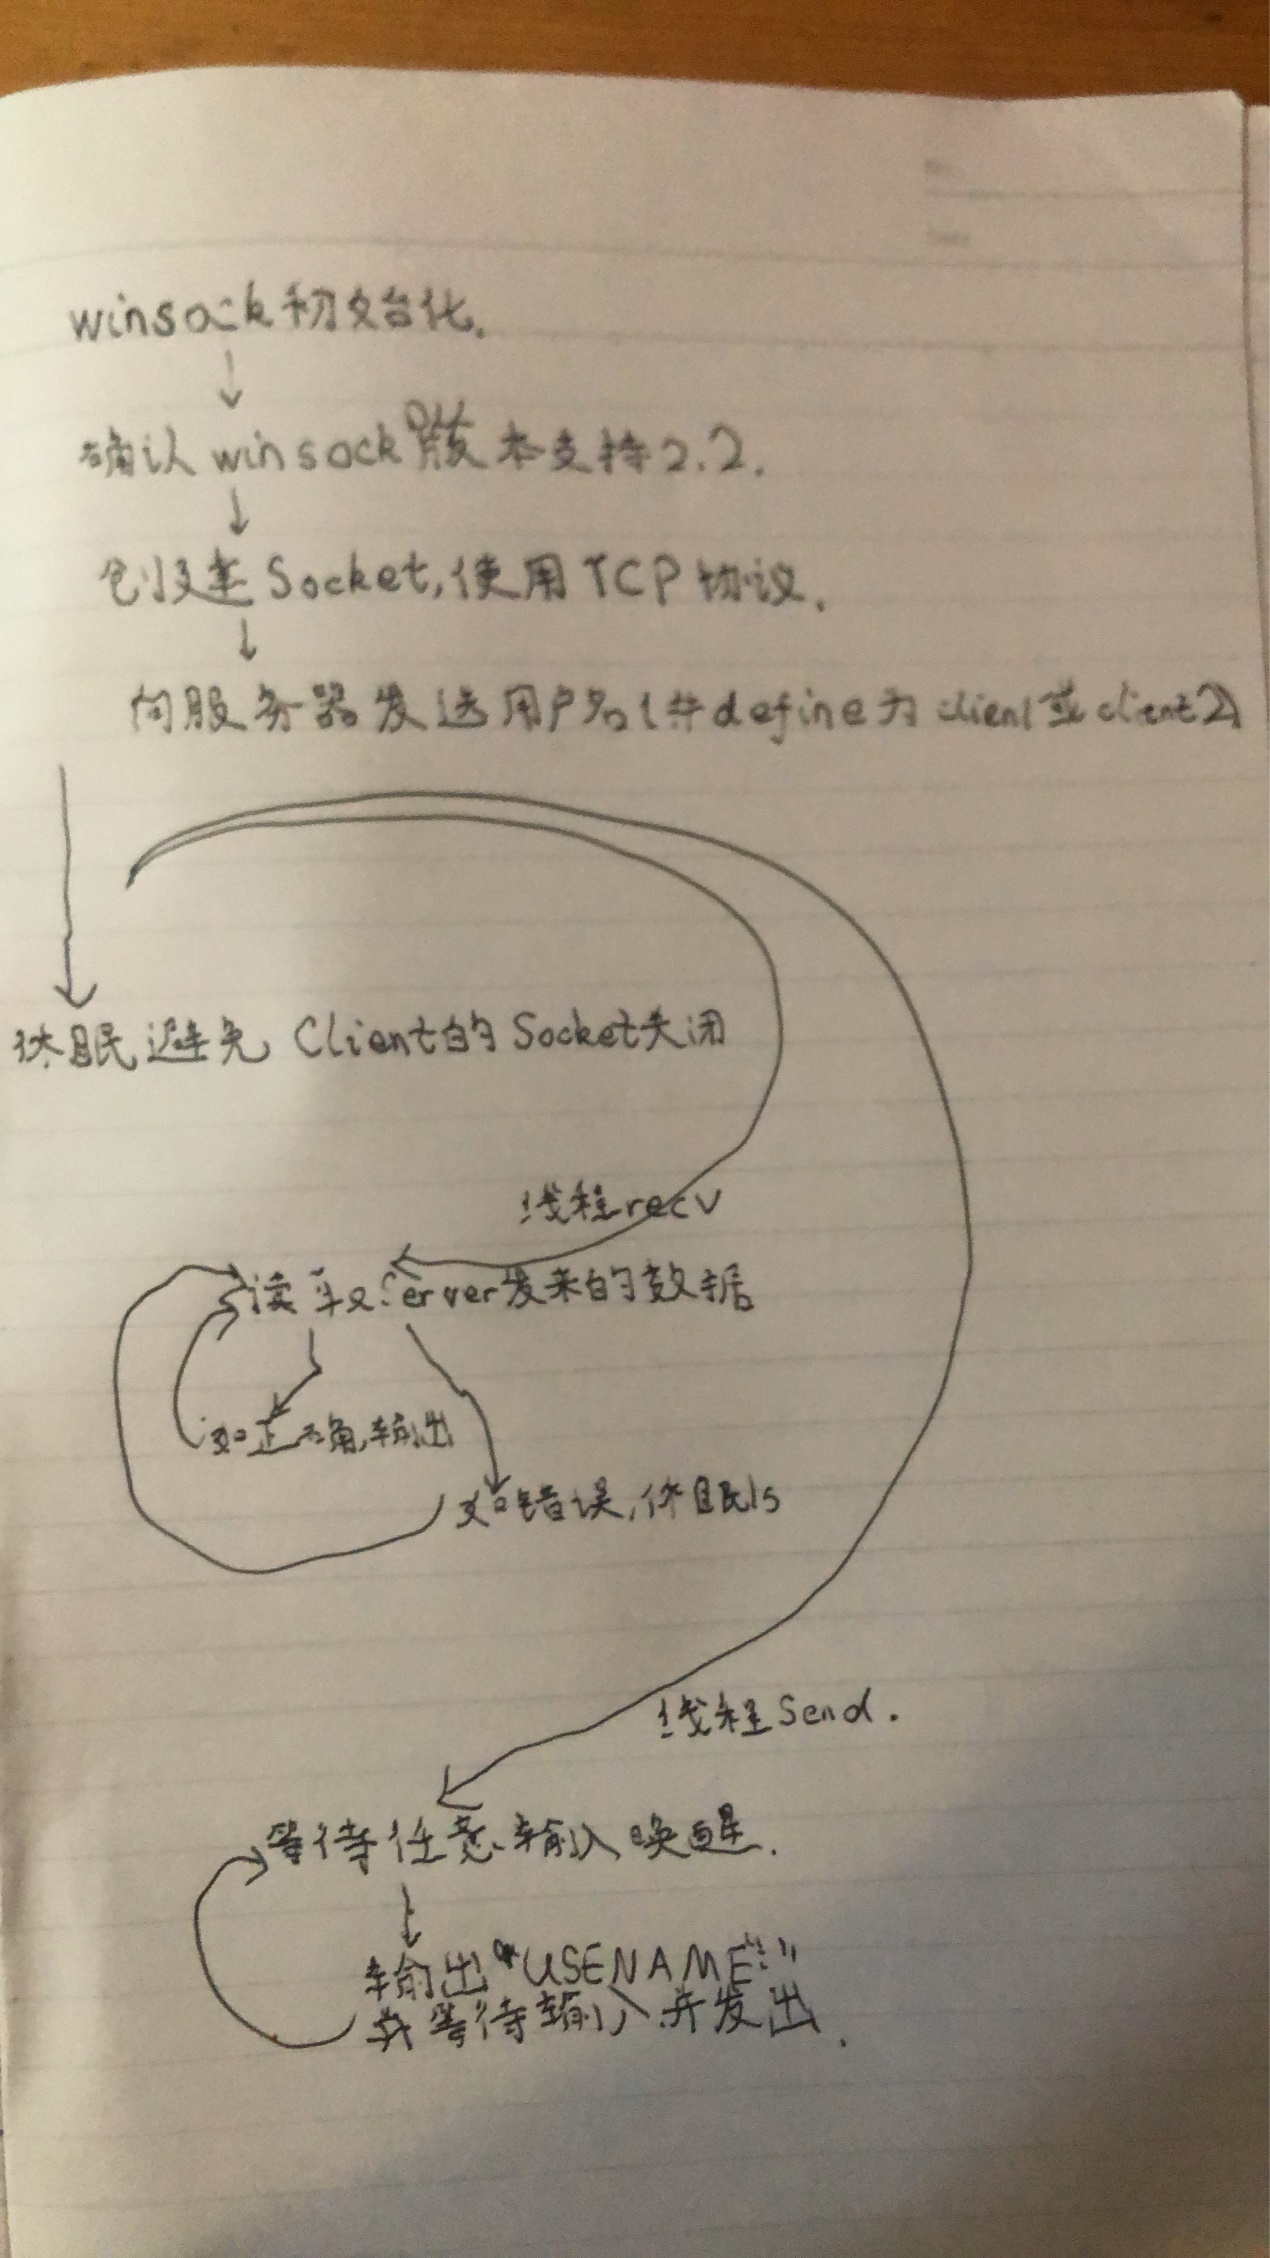 winsock初始化.
确认winsock版本支持2.2.
创建Socket,使用TCP协议.
向服务器发送用户名(#define为clien1或client2)
休眠避免Client的Socket关闭
线程recv
读取Server发来的数据
如正确,输出
如错误,休眠1s
线程Send.
等待任意输入唤醒.
输出"USENAME:"
并等待输入并发出.